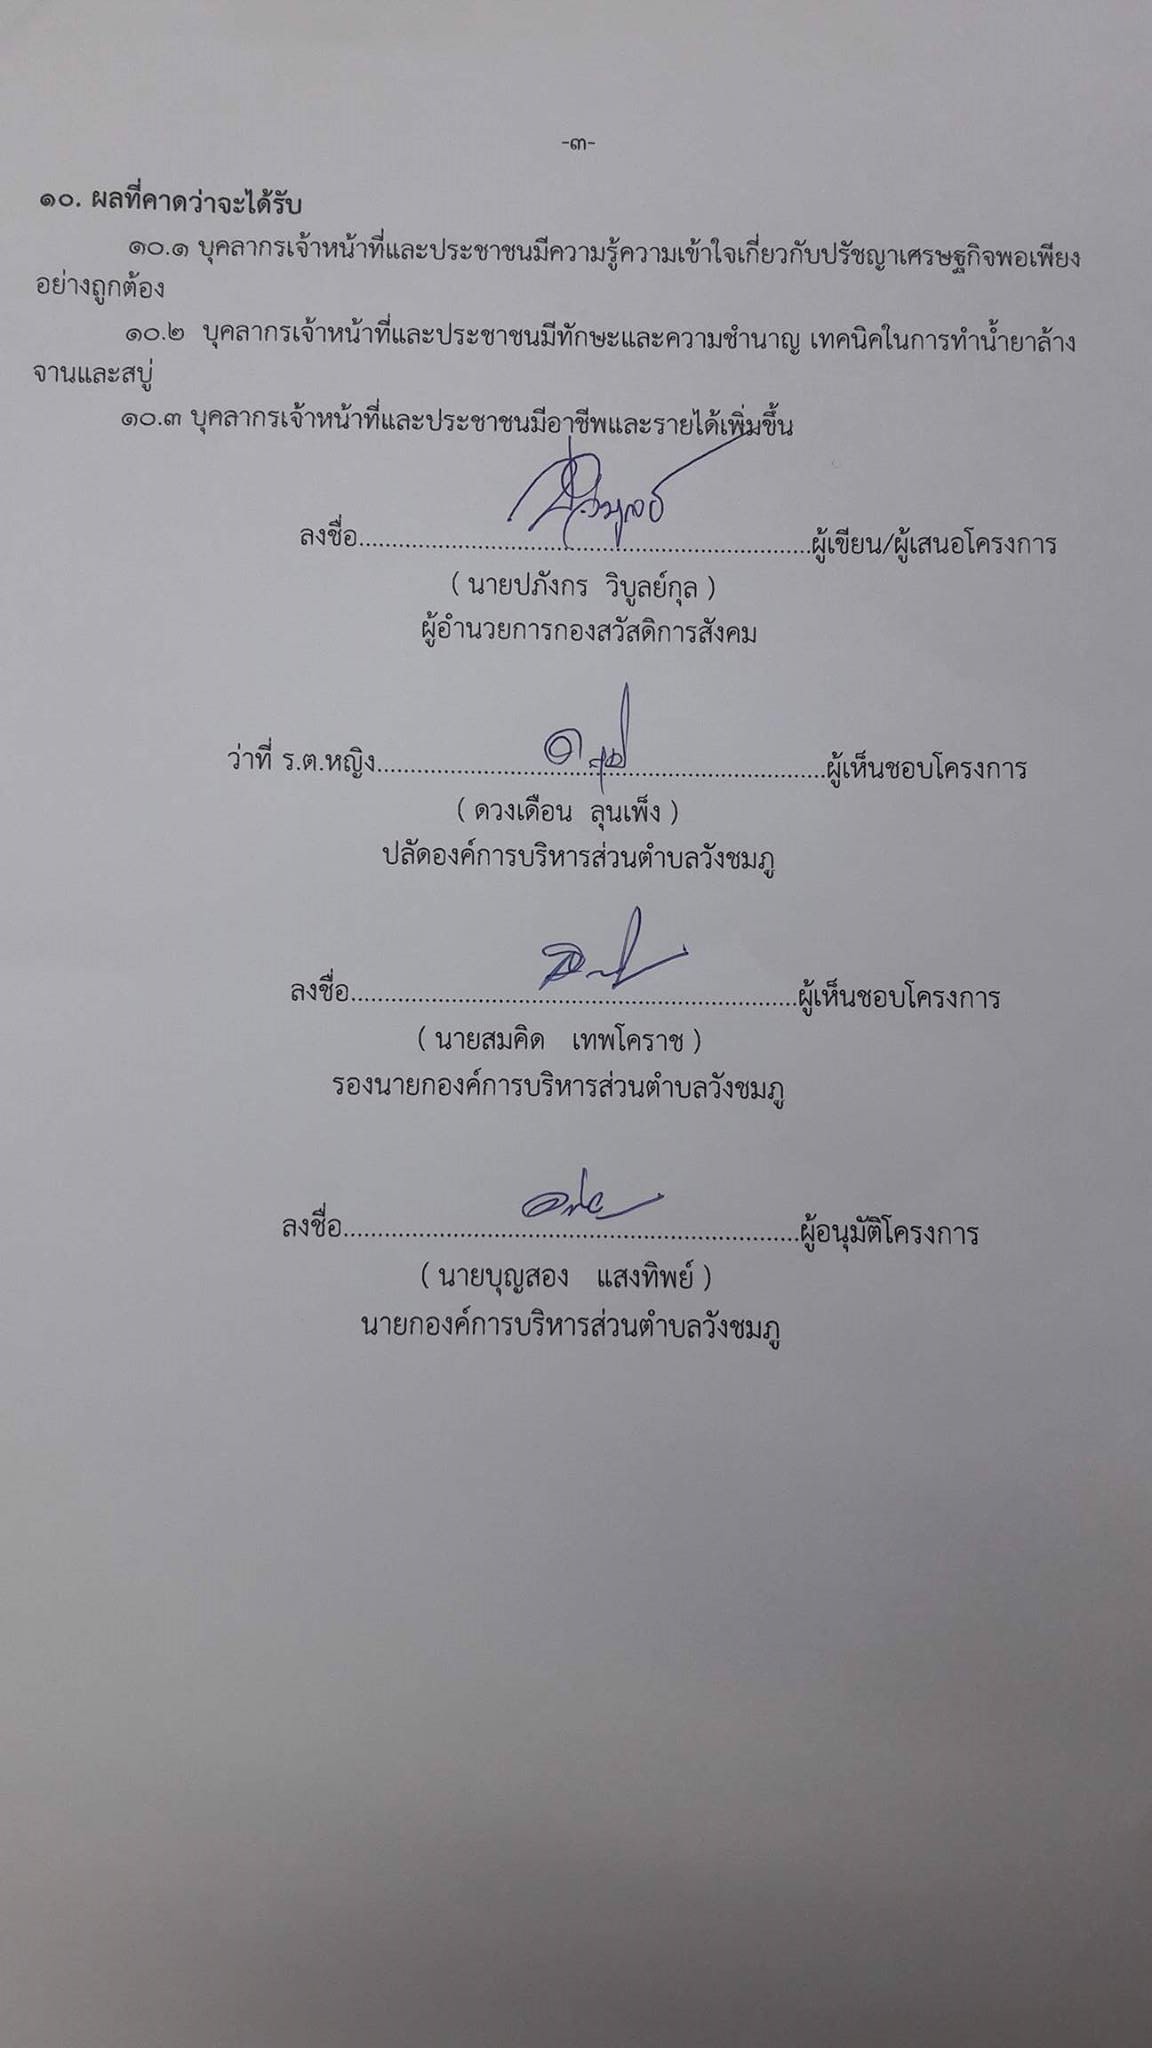 -๓-
๑๐. ผลที่คาดว่าจะได้รับ
๑๐.๑ บุคลากรเจ้าหน้าที่และประชาชนมีความรู้ความเข้าใจเกี่ยวกับปรัชญาเศรษฐกิจพอเพียง
อย่างถูกต้อง
๑๐.๒ บุคลากรเจ้าหน้าที่และประชาชนมีทักษะและความชำนาญ เทคนิคในการทำน้ำยาล้าง
จานและสบู่
๑๐.๓ บุคลากรเจ้าหน้าที่และประชาชนมีอาชีพและรายได้เพิ่มขึ้น
ลงชื่อ.........................................................ผู้เขียน/ผู้เสนอโครงการ
( นายปภังกร วิบูลย์กุล )
ผู้อำนวยการกองสวัสดิการสังคม
ว่าที่ ร.ต.หญิง.........................................................ผู้เห็นชอบโครงการ
( ดวงเดือน ลุนเพ็ง )
ปลัดองค์การบริหารส่วนตำบลวังชมภู
ลงชื่อ.........................................................ผู้เห็นชอบโครงการ
( นายสมคิด เทพโคราช )
รองนายกองค์การบริหารส่วนตำบลวังชมภู
ลงชื่อ.........................................................ผู้อนุมัติโครงการ
( นายบุญสอง แสงทิพย์ )
นายกองค์การบริหารส่วนตำบลวังชมภู